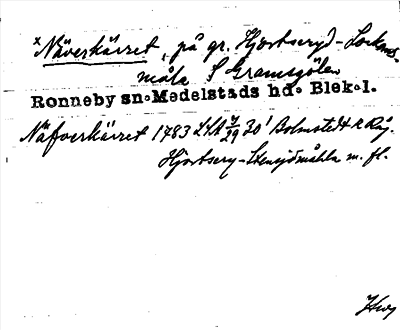 x Näverkärret, på gr. Hjortseryd-Lockans-
måla S Gramsgölen
Ronneby sn. Medelstads hd. Blek.l.
Näfverkärret 1783 LSA 7/29 30' Bolmstedt R Råj.
Hjortsery-Stensjömåhla m. fl.